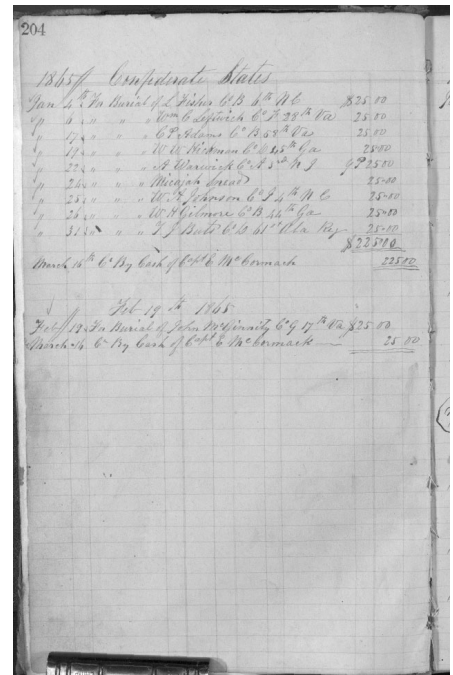 204
1865 Confederate States
Jan 4th For Burial of L Fisher Co B 6th N C $25.00
" 6 " " " Wm C Leftwich Co F 28th Va 25.00
" 17 " " " C P Adams Co B 58th Va 25.00
" 19 " " " W W Hickman Co 45th Ga 25.00
" 22 " " " A Warwick Co A 3rd N J 25.00
" 24 " " " Micajah 25.00
" 25 " " " W Johnson Co 4th N C 25.00
" 26 " " " W H Gilmore Co B 44th Ga 25.00
" 31 " " J Bats Co G 61st Ala Reg 25.00
$225.00
March 16th Cr By Cash of Capt E McCormack 225.00
Feb 19th 1865
Feb 19 For Burial of John McGinnity Co G 17th Va $25.00
March 14 Cr By Cash of Capt E McCormack 25 00